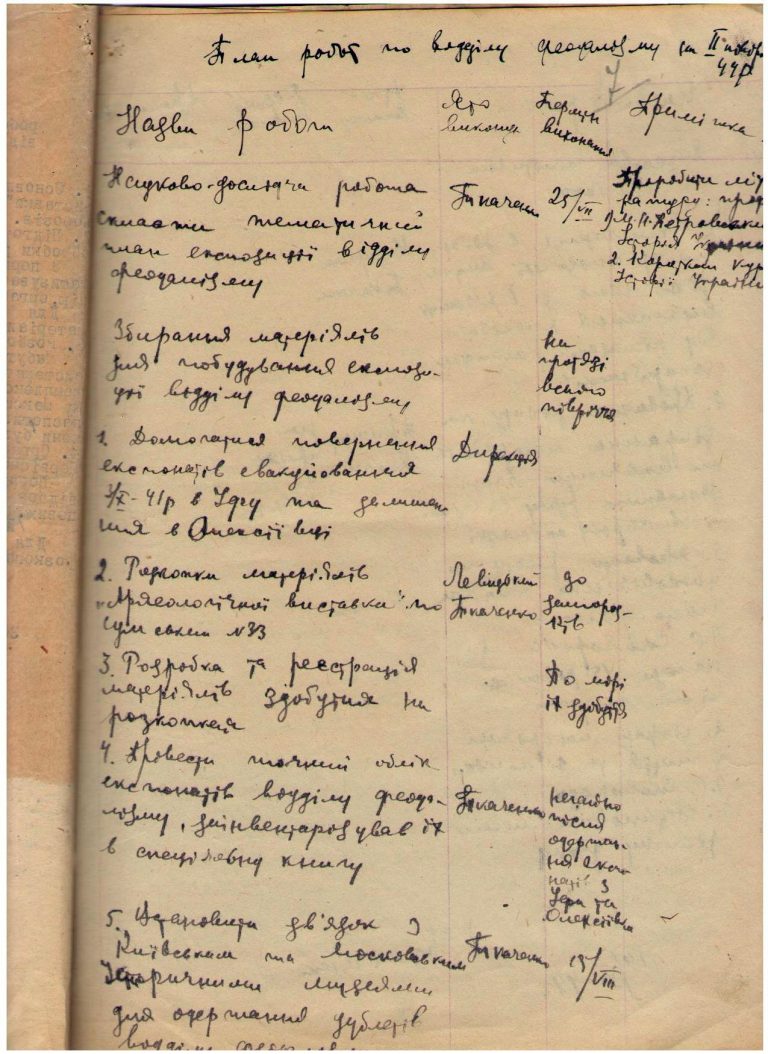 План робот по відділу феодалізму на II
44р
7
Назви роботи
Хто
викону
Термін
виконання
Примітка
Науково-дослідча робота
скласти тематичний
план експозиції відділу
феодалізму
Ткаченко
25/VII
Проробити
1) М.Н. Петровський
Історія України
2. Короткий кур
Історії України
Збирання матеріялів
для побудування експози-
ції відділу феодалізму
на
протязі
всього
піврічча
1. Домогатися повернення
експонатів евакуйовання
/IX-41р в Уфу та залишен
ня в Олексіївці
Дирекція
2. Розкопки матеріялів
"Археологічної виставки" по
Сумській №33
Левицький
Ткаченко
до
заморозків
3. Розробка та реєстрація
матеріялів здобутих на
розкопках
По мірі
їх здобуття
4. Провести точний облік
експонатів відділу феода-
лізму, заінвентарізував їх
в спеціяльну книгу
Ткаченко
негайно
після
одержан-
ня експо
натів з
Уфи та
Олексіївки
5. Установити зв'язок з
Київським та Московським
Історичними музеями
для одержання дублетів
Ткаченко
15/VIII